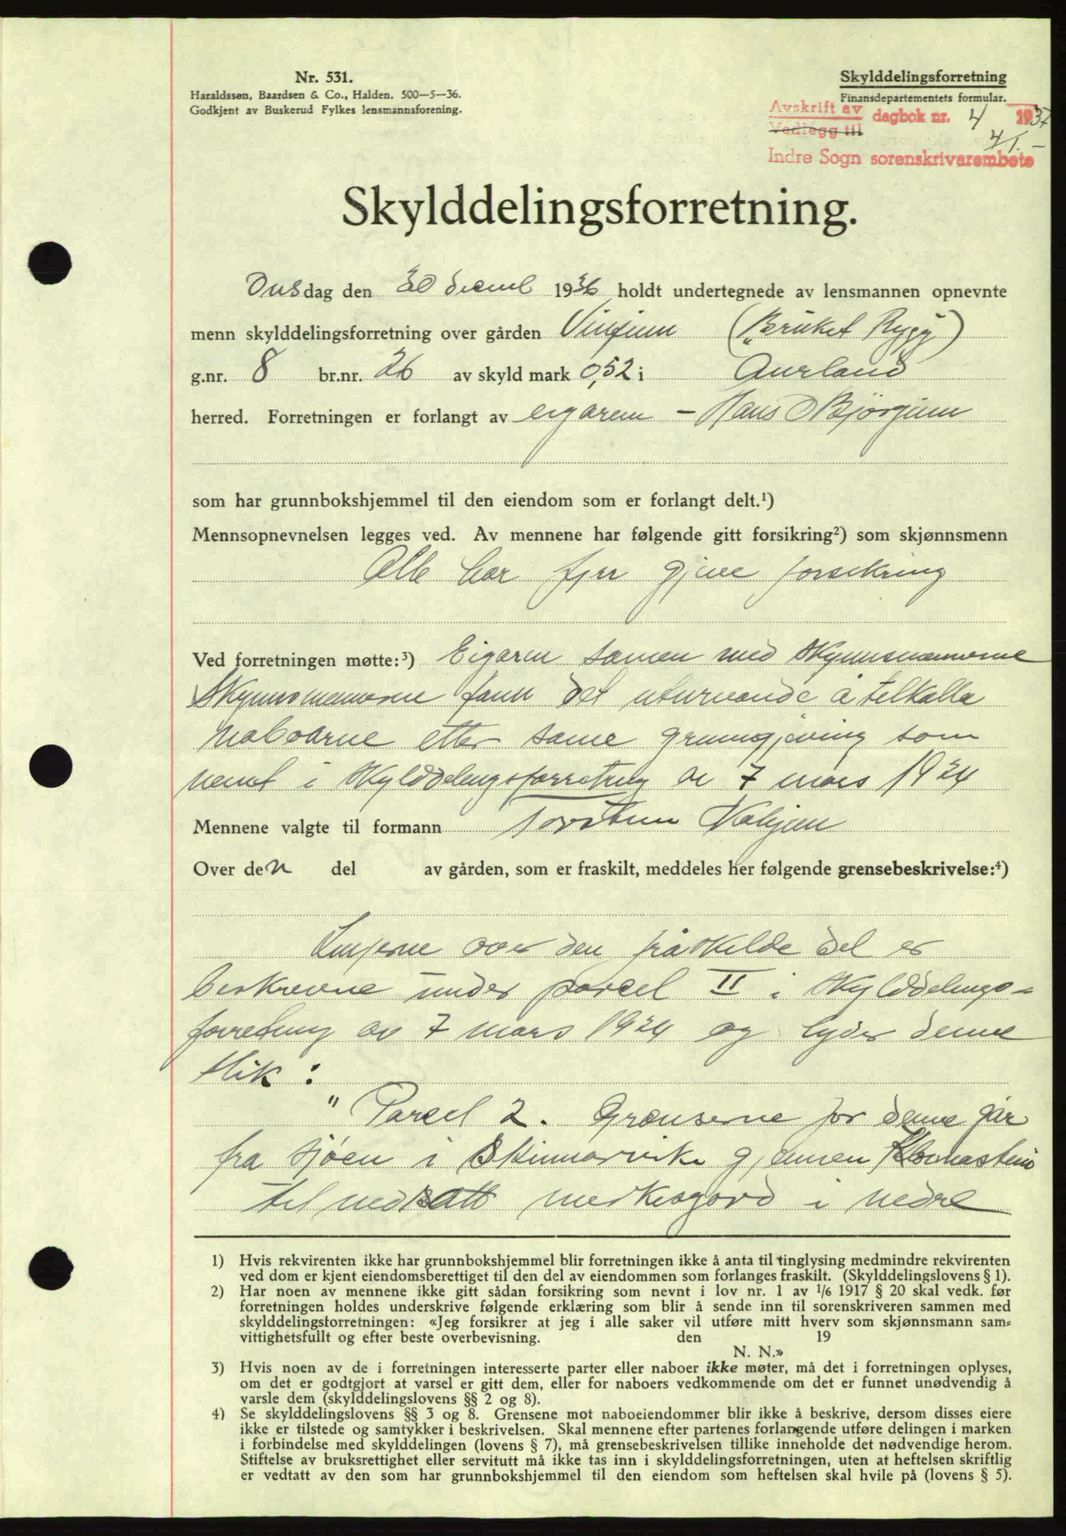 Nr. 531.
Haraldssen, Baardsen & Co., Halden. 500—5—36.
Godkjent av Buskerud Fylkes lensmannsforening.
Skylddelingsforretning
Finansdepartementets formular.
Avskrift av
Vedlegg til
dagbok nr. 4 1937
4/1.-
Indre Sogn sorenskrivarembete
Skylddelingsforretning.
Onsdag den 30 desemb 1936 holdt undertegnede av lensmannen opnevnte
menn skylddelingsforretning over gården ("Bruket Rygg")
g.nr. 8 br.nr. 26 av skyld mark 0,52 i Aurland
herred. Forretningen er forlangt av eigaren - Hans O Bjørgum
som har grunnbokshjemmel til den eiendom som er forlangt delt.¹)
Mennsopnevnelsen legges ved. Av mennene har følgende gitt forsikring²) som skjønnsmenn
Alle har fyrr gjeve forsikring
Ved forretningen møtte:³) Eigaren saman med skynnsmennerne
Skynnsmennerne fann det uturvande å tilkalla
naboarne etter same grunngjeving som
nemt i skylddelingsforretning av 7 mars 1934
Mennene valgte til formann
Over den del av gården, som er fraskilt, meddeles her følgende grensebeskrivelse:⁴)
Linjerne over den fråskilde del er
beskrevne under parcel II i skylddelings=
forretning av 7 mars 1934 og lyder denne
slik:
"Parcel 2. Grænserne for denne går
fra sjøen i Skinnarvike gjennem
til nedsatt merkesgard i nedre
1) Hvis rekvirenten ikke har grunnbokshjemmel blir forretningen ikke å anta til tinglysing medmindre rekvirenten
ved dom er kjent eiendomsberettiget til den del av eiendommen som forlanges fraskilt. (Skylddelingslovens § 1).
2) Har noen av mennene ikke gitt sådan forsikring som nevnt i lov nr. 1 av 1/6 1917 § 20 skal vedk. før
forretningen holdes underskrive følgende erklæring som blir å sende inn til sorenskriveren sammen med
skylddelingsforretningen: «Jeg forsikrer at jeg i alle saker vil utføre mitt hverv som skjønnsmann sam=
vittighetsfullt og efter beste overbevisning. den 19
N. N.»
3) Hvis noen av de i forretningen interesserte parter eller naboer ikke møter, må det i forretningen oplyses,
om det er godtgjort at varsel er gitt dem, eller for naboers vedkommende om det er funnet unødvendig å
varsle dem (skylddelingslovens §§ 2 og 8).
4) Se skylddelingslovens §§ 3 og 8. Grensene mot naboeiendommer blir ikke å beskrive, dersom disses eiere
ikke er tilstede og samtykker i beskrivelsen. Skal mennene efter partenes forlangende utføre delingen i marken
i forbindelse med skylddelingen (lovens § 7), må grensebeskrivelsen tillike inneholde det nødvendige herom.
Stiftelse av bruksrettighet eller servitutt må ikke tas inn i skylddelingsforretningen, uten at heftelsen skriftlig
er vedtatt av den som har grunnbokshjemmel til den eiendom som heftelsen skal hvile på (lovens § 5).